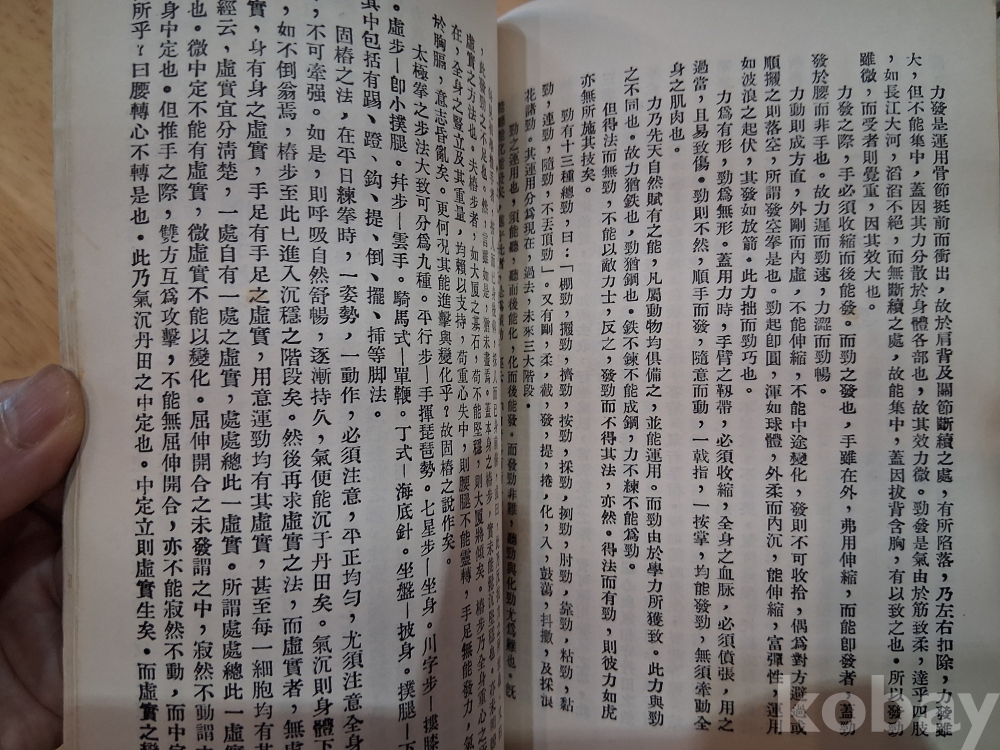 力發是運用骨節挺前而衝出，故於肩背及關節斷續之處，有所陷落，乃左右扣除，力發雖
大，但不能集中，蓋因其力分散於身體各部也，故其效力微。勁發是氣由於筋致柔，達乎四肢
，如長江大河，滔滔不絕，而無斷續之處，故能集中，蓋因拔背含胸，有以致之也。所以發勁
雖微，而受者則覺重，因其效大也。
力發之際，手必須收縮而後能發。而勁之發也，手雖在外，弗用伸縮，而能卽發者，蓋勁
發於腰而非手也。故力遲而勁速，力澀而勁暢。
力動則成方直，外剛而內虛，不能伸縮，不能中途變化，發則不可收拾，偶爲對方避過或
順搬之則落空，所謂發空拳是也。勁起卽圓，渾如球體，外柔而內沉，能伸縮，富彈性，運用
如波浪之起伏，其發如放箭。此力拙而勁巧也。
力爲有形，勁爲無形。蓋用力時，手臂之韌帶，必須收縮，全身之血脈，必須僨張，用之
過當，且易致傷。勁則不然，順手而發，隨意而動，一戟指，一按掌，均能發勁，無須牽動全
身之肌肉也。
力乃先天自然賦有之能，凡屬動物均俱備之，並能運用。而勁由於學力所獲致。此力與勁
之不同也。故力猶鉄也，勁猶鋼也。鉄不鍊不能成鋼，力不練不能爲勁。
但得法而無勁，不能以敵力士，反之，發勁而不得其法，亦然。得法而有勁，則彼力如虎
亦無所施其技矣。
勁有十三種總勁，曰：「棚勁，搌勁，擠勁，按勁，採勁，挒勁，肘勁，靠勁，粘勁，黏
勁，連勁，隨勁，不丟頂勁」。又有剛，柔，截，發，提，捲，化，入，鼓蕩，抖擻，及採浪
花諸勁。其運用分爲現在，過去，未來三大階段。
勁之運用也，須能聽，聽而後能化，化而後能發。而發勁非難，聽勁與化勁尤爲難也。既
虛實之方法也。夫樁步者，如大厦之基石，苟不能堅穩，則大厦將傾矣。樁步乃全身重心之所
在，全身之豎立及其重量，均賴以支持，苟重心失中，則腰腿不能靈轉，手足無能發力，氣
於胸膈，意志昏亂矣。更何況其能進擊與變化乎？故固樁之說作矣。
太極拳之步法大致可分爲九種。平行步—手揮琵琶勢。七星步—坐身。川字步—摟膝
。虛步—卽小撲腿。弁步—雲手。騎馬式—單鞭。丁式—海底針。坐盤—披身。撲腿—下
其中包括有踢、蹬、鈎、提、倒、擺、揷等脚法。
固樁之法，在平日練拳時，一姿勢，一動作，必須注意，平正均勻，尤須注意全身
，不可牽强。如是，則呼吸自然舒暢，逐漸持久，氣便能沉于丹田矣。氣沉則身體下
，如不倒翁焉，樁步至此已進入沉穩之階段矣。然後再求虛實之法，而虛實者，無處
，身有身之虛實，手足有手足之虛實，用意運勁均有其虛實，甚至每一細胞均有
經云，虛實宜分清楚，一處自有一處之虛實，處處總此一虛實。所謂處處總此一虛實
也。微中定不能有虛實，微虛實不能以變化。屈伸開合之未發謂之中，寂然不動謂之
身中定也。但推手之際，雙方互爲攻擊，不能無屈伸開合，亦不能寂然不動，而中定
所乎？曰腰轉心不轉是也。此乃氣沉丹田之中定也。中定立則虛實生矣。而虛實之變
kobay